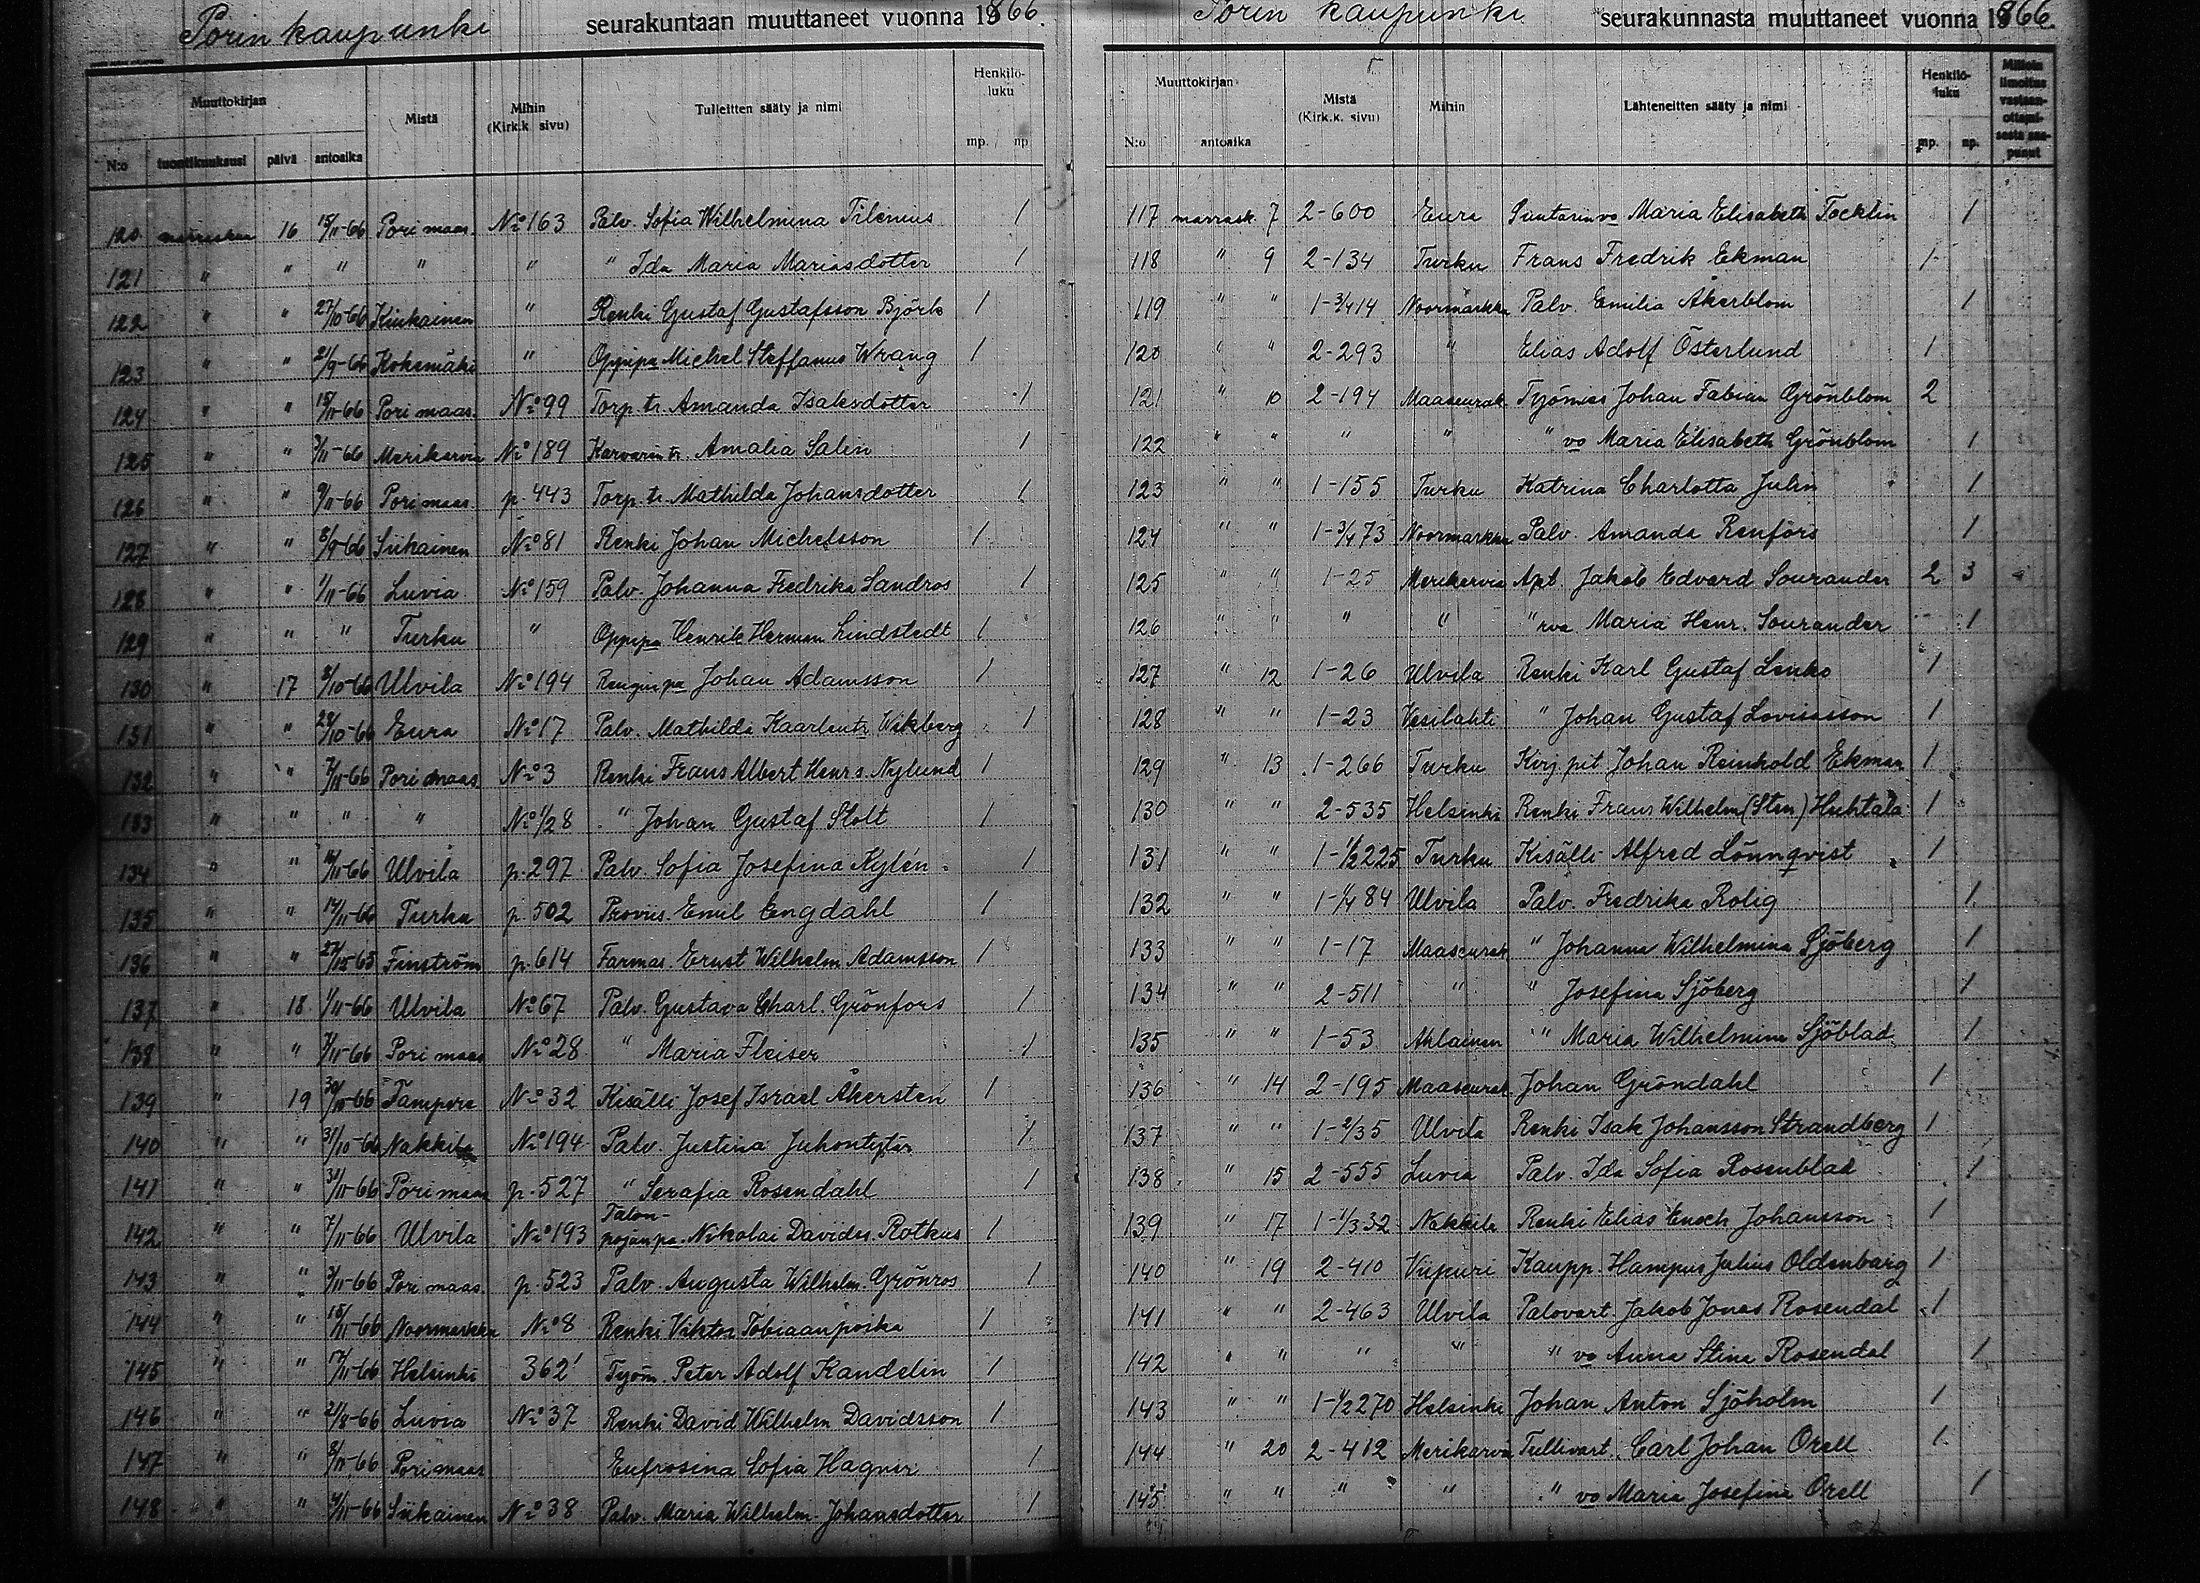 Porin kaupunki seurakuntaan muuttaneet vuonna 1866.
Muuttokirjan Mistä Mihin (Kirk.k. sivu) Tulleitten sääty ja nimi Henkilö-luku
N:o tuontikuukausi päivä antoaika mp. np
120 marraskuu 16 15/11-66 Pori maas. No 163 Palv. Sofia Wilhelmina Tilenius 1
121 " " " " " " Ida Maria Mariasdotter 1
122 " " 27/10-66 Kiukainen " Renki Gustaf Gustafsson Björk 1
123 " " 21/9-66 Kokemäki " Oppipa Michel Steffanus Wrang 1
124 " " 15/11-66 Pori maas. No 99 Torp. tr. Amanda Isaksdotter 1
125 " " 3/11-66 Merikarvia No 189 Karvarin tr. Amalia Salin 1
126 " " 9/11-66 Pori maas p. 443 Torp. tr. Mathilda Johansdotter 1
127 " " 8/9-66 Siikainen No 81 Renki Johan Michelsson 1
128 " " 1/11-66 Luvia No 159 Palv. Johanna Fredrika Sandros 1
129 " " " Turku " Oppipa Henrik Herman Lindstedt 1
130 " 17 8/10-66 Ulvila No 194 Renginpa Johan Adamsson 1
131 " " 28/10-66 Eura No 17 Palv. Mathilda Kaarlentr Wikberg 1
132 " " 7/11-66 Pori maas No 3 Renki Frans Albert Henrs. Nylund 1
133 " " " " No 1/28 " Johan Gustaf Stolt 1
134 " " 16/11-66 Ulvila p. 297 Palv. Sofia Josefina Kylén 1
135 " " 14/11-66 Turku p. 502 Proviis. Emil Engdahl 1
136 " " 27/12-65 Finström p. 614 Farmas. Ernst Wilhelm Adamsson 1
137 " 18 1/11-66 Ulvila No 67 Palv. Gustava Charl. Grönfors 1
138 " " 7/11-66 Pori maas No 28 " Maria Fleiser 1
139 " 19 30/10-66 Tampere No 32 Kisälli Josef Israel Åkersten 1
140 " " 31/10-66 Nakkila No 194 Palv. Justina Juhontytär 1
141 " " 31/11-66 Pori maas p. 527 " Serafia Rosendahl 1
142 " " 7/11-66 Ulvila No 193 Talon-pojan pa. Nikolai Davids. Rotkus 1
143 " " 3/11-66 Pori maas. p. 523 Palv. Augusta Wilhelm. Grönros 1
144 " " 15/11-66 Noormarkku No 8 Renki Viktor Tobiaanpoika 1
145 " " 17/11-66 Helsinki 362 Työm. Peter Adolf Kandelin 1
146 " " 21/8-66 Luvia No 37 Renki David Wilhelm Davidsson 1
147 " " 8/11-66 Pori maas Eufrosina Sofia Hagner 1
148 " " 4/11-66 Siikainen No 38 Palv. Maria Wilhelm. Johansdotter 1
Porin kaupunki seurakunnasta muuttaneet vuonna 1866.
Muuttokirjan Mistä (Kirk.k. sivu) Mihin Lähteneitten sääty ja nimi Henkilö-luku Milloin ilmoitus vastaan-ottami-sesta saa-punut
N:o antoaika mp. np.
117 marrask. 7 2-600 Eura Suutarin vo Maria Elisabeth Tocklin 1
118 " 9 2-134 Turku Frans Fredrik Ekman 1
119 " " 1-3/414 Noormarkku Palv. Emilia Åkerblom 1
120 " " 2-293 " Elias Adolf Österlund 1
121 " 10 2-194 Maaseurak Työmies Johan Fabian Grönblom 2
122 " " " " " vo Maria Elisabeth Grönblom 1
123 " " 1-155 Turku Katrina Charlotta Julin 1
124 " " 1-3/473 Noormarkku Palv. Amanda Renfors 1
125 " " 1-25 Merikarvia Apt. Jakob Edvard Sourander 2 3
126 " " " " " rva Maria Henr. Sourander 1
127 " 12 1-26 Ulvila Renki Karl Gustaf Lenko 1
128 " " 1-23 Vesilahti " Johan Gustaf Lovisasson 1
129 " 13 1-266 Turku Kirj.pit Johan Reinhold Ekman 1
130 " " 2-535 Helsinki Renki Frans Wilhelm (Sten) Huhtala 1
131 " " 1-1/2225 Turku Kisälli Alfred Lönnqvist 1
132 " " 1-1/484 Ulvila Palv. Fredrika Rolig 1
133 " " 1-17 Maaseurak " Johanna Wilhelmina Sjöberg 1
134 " " 2-511 " " Josefina Sjöberg 1
135 " " 1-53 Ahlainen " Maria Wilhelmina Sjöblad 1
136 " 14 2-195 Maaseurak Johan Gröndahl 1
137 " " 1-2/35 Ulvila Renki Isak Johansson Strandberg 1
138 " 15 2-555 Luvia Palv. Ida Sofia Rosenblad 1
139 " 17 1-1/332 Nakkila Renki Elias Enoch Johansson 1
140 " 19 2-410 Viipuri Kaupp. Hampus Julius Oldenburg 1
141 " " 2-463 Ulvila Palovart. Jakob Jonas Rosendal 1
142 " " " " " vo Anna Stina Rosendal 1
143 " " 1-1/2270 Helsinki Johan Anton Sjöholm 1
144 " 20 2-412 Merikarvia Tullivart. Carl Johan Orell 1
145 " " " " " vo Maria Josefina Orell 1